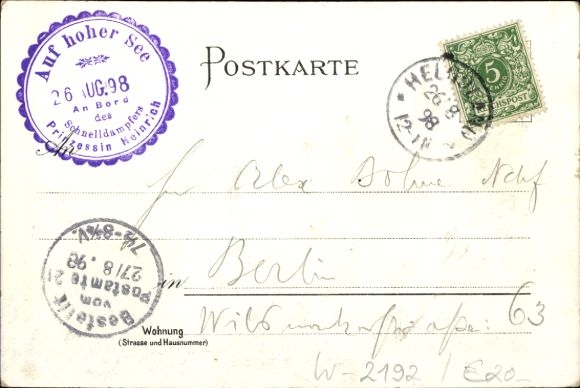 Auf hoher See
26 AUG. 98
An Bord
des
Schnelldampfers
Prinzessin Heinrich
POSTKARTE
HELGOLAND
26 8
98
12-1N
5
REICHSPOST
An
Alex Bohne Nchf
in Berlin
Wohnung
(Strasse und Hausnummer)
63
Bestellt
vom
Postamte 21
27/8. 98
7½-8¾V.
W-2192 / E20-